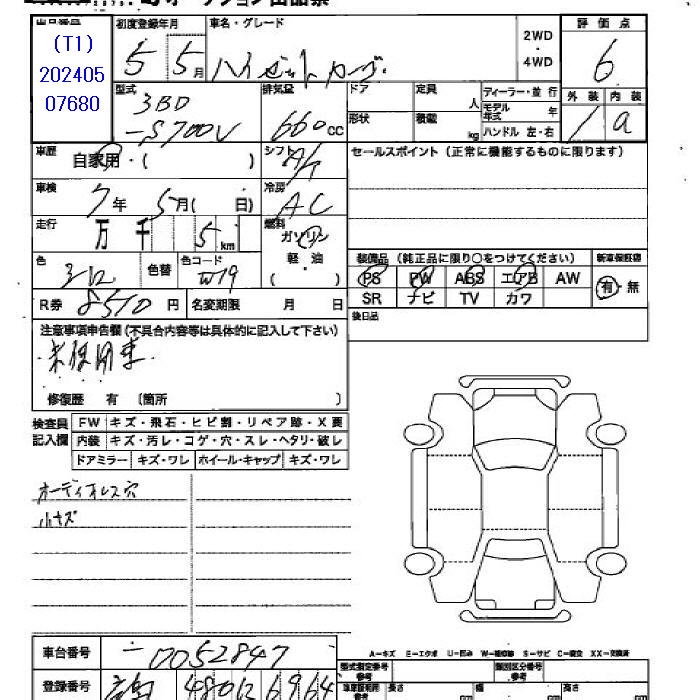 出品番号
(T1)
202405
07680
初度登録年月
5 5月
車名・グレード
ハイゼットカーゴ
2WD
・
4WD
評価点
6
外装 内装
1 a
型式
3BD
-S700V
排気量
660cc
ドア
定員
人
形状
積載
kg
ディーラー・並行
モデル年式 年
ハンドル 左・右
車歴
自家用・( )
シフト
A/T
セールスポイント (正常に機能するものに限ります)
車検
7年 5月( 日)
冷房
AC
走行
万 千 5 km
燃料
ガソリン
軽・油
( )
色
シロ
色替
色コード
W19
装備品 (純正品に限り〇をつけてください)
新車保証書
PS PW ABS エアB AW
有・無
SR ナビ TV カワ
R券 8510円
名変期限 月 日
後日品
注意事項申告欄 (不具合内容等は具体的に記入して下さい)
未使用車
修復歴 有 〔箇所 〕
検査員
記入欄
FW キズ・飛石・ヒビ割・リペア跡・X要
内装 キズ・汚レ・コゲ・穴・スレ・ヘタリ・破レ
ドアミラー キズ・ワレ ホイール・キャップ キズ・ワレ
オーディオレス穴
小キズ
車台番号
-0052847
登録番号
480 6964
A−キズ E−エクボ U−凹み W−補修跡 S−サビ C−腐食 XX−交換済
型式指定番号
類別区分番号
長さ 幅 高さ
cm cm cm